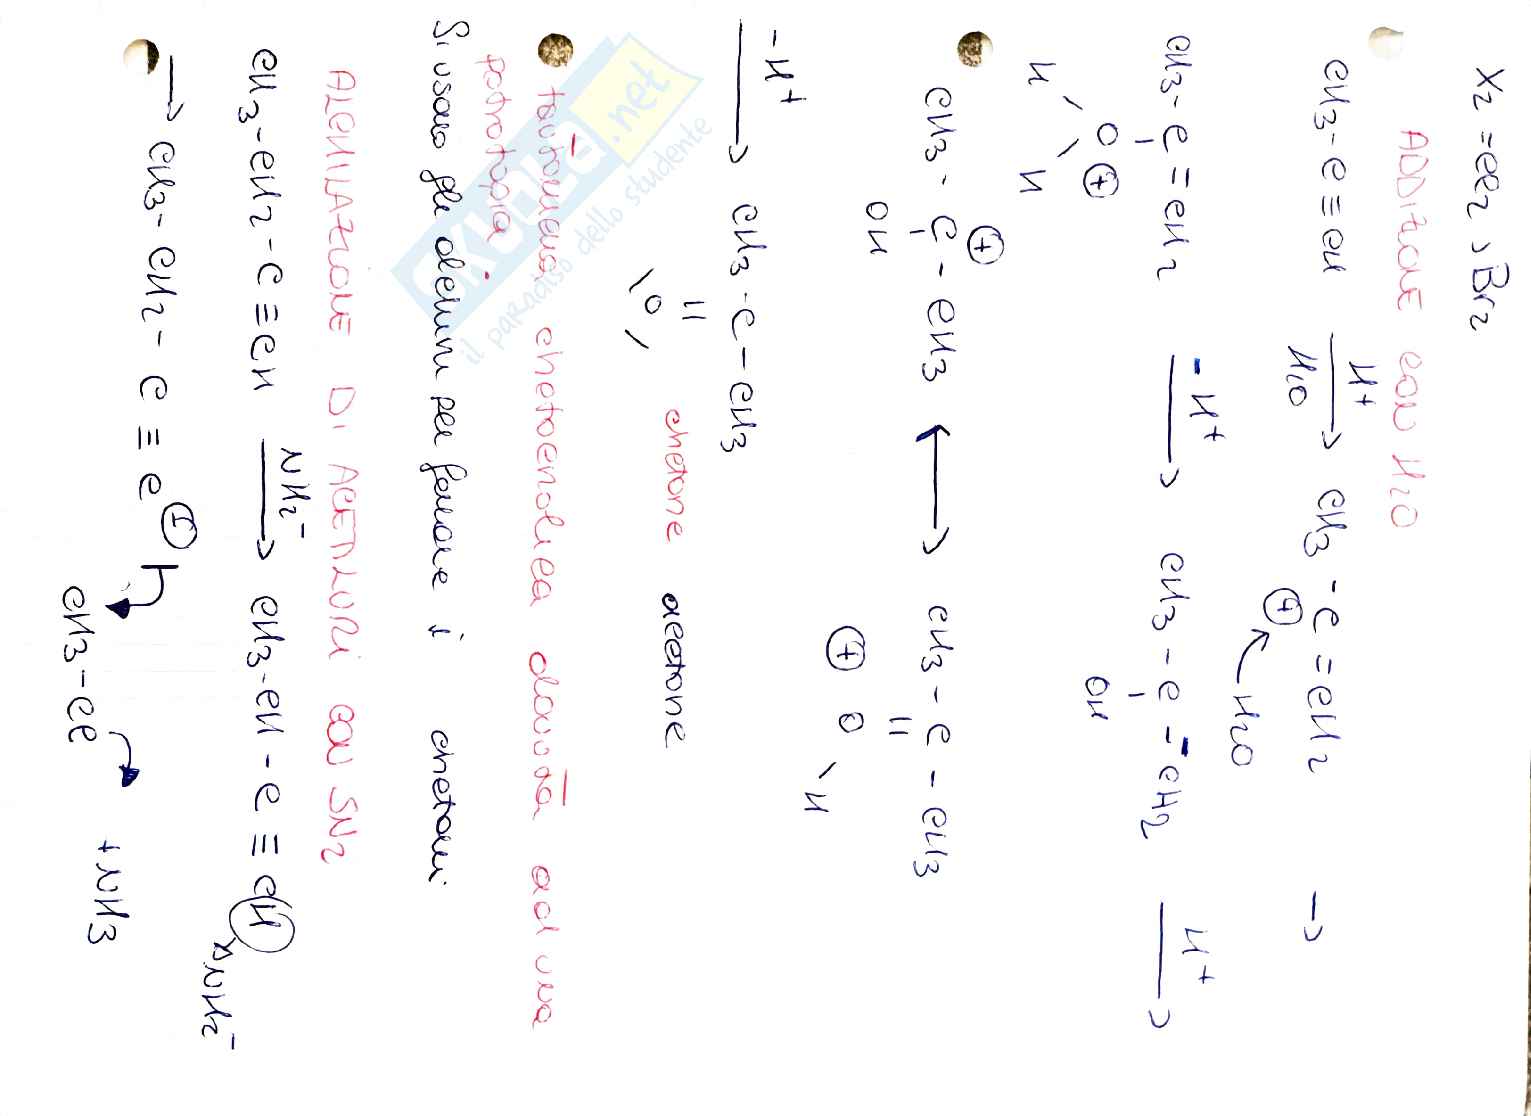 X2 = CC2, Br2
ADDIZIONE CON H2O
CH3-C≡CH H+ H2O → CH3-C=CH2 →
⊕ H2O
CH3-C=CH2 -H+ → CH3-C=CH2 H+ →
O ⊕ OH
H H
CH3-C-CH3 ↔ CH3-C-CH3
⊕ OH || O ⊕ H
-H+ → CH3-C-CH3
||
O
chetone acetone
tautomeria chetoenolica dovuta ad una
Si usano gli alchini per formare i chetoni
ALCHILAZIONE DI ACETILURI CON SN2
CH3-CH2-C≡CH NH2- → CH3-CH-C≡CH NH2-
→ CH3-CH2-C≡C ⊖ + NH3
CH3-CC
SKUOLA.net
il paradiso dello studente